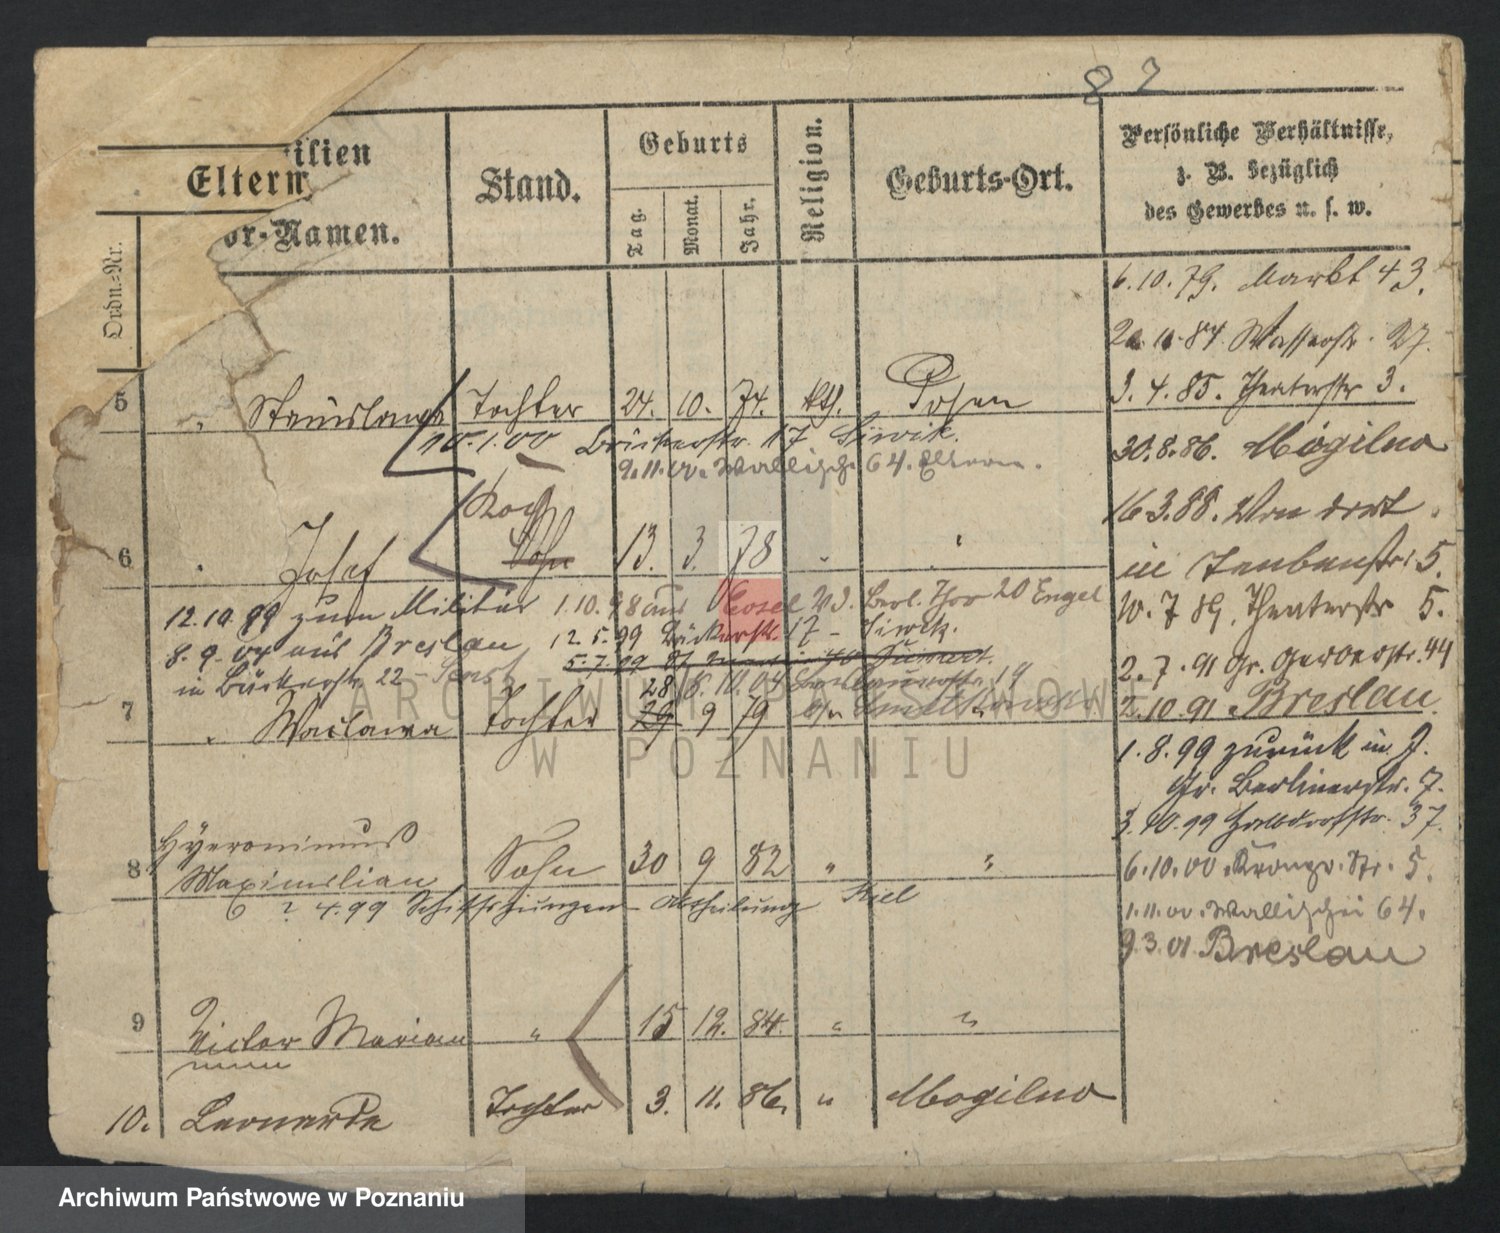 82
ilien
Eltern
or-Namen.
Ordn.-Nr.
Stand.
Geburts
Tag.
Monat.
Jahr.
Religion.
Geburts-Ort.
Persönliche Verhältnisse,
z. B. bezüglich
des Gewerbes u. s. w.
6.10.79. Markt 43.
11.84 Wasserstr. 27.
3.4.85. Theaterstr 3.
5 " Stanislawa Tochter 24. 10. 74. kth. Posen
10.1.00 Bäckerstr. 17
30.8.86. Mogilno
Wallische 64. Eltern.
16.3.88. Von dort
in Taubenstr. 5.
6 " Josef Sohn 13. 3. 78 " "
12.10.99 zum Militär 1.10.98 aus Cosel Berl. Thor 20 Engel
10.7.89. Theaterstr 5.
8.9.04 aus Breslau 12.5.99 Bäckerstr. 17 -
in Bäckerstr. 22 -
5.7.99
2.7.91 Gr. Gerberstr. 44
28 8.11.04
7 " Waclawa Tochter 29 9 79
2.10.91 Breslau.
ARCHIWUM PAŃSTWOWE
W POZNANIU
1.8.99 zurück in J.
Gr. Berlinerstr. 7.
3.10.99 Halbdorfstr. 37.
8 Hyeronimus
Maximilian Sohn 30 9 82 " "
6.10.00 Kronpr. Str. 5.
4.99 Schiffsjungen-Abtheilung Kiel
1.11.00. Wallischei 64.
9.3.01 Breslau
9 Victor Marian " 15 12. 84. " "
10. Leonarda Tochter 3. 11. 86. " Mogilno
Archiwum Państwowe w Poznaniu